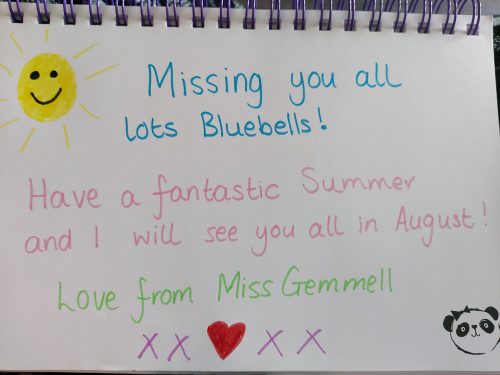 Missing you all
lots Bluebells!
Have a fantastic Summer
and I will see you all in August!
Love from Miss Gemmell
X X X X